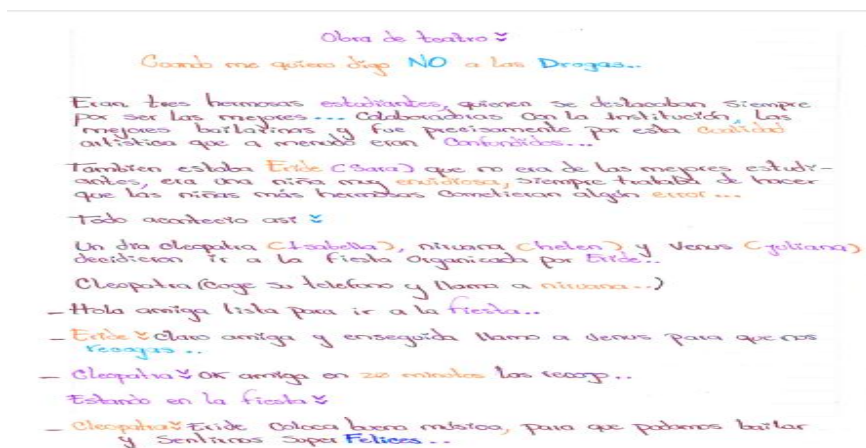 Obra de teatro
Cuando me quiero digo NO a las Drogas...
Eran tres hermosas estudiantes, quienes se destacaban siempre
por ser las mejores... Colaboradoras con la Institución, las
mejores bailarinas y fue precisamente por esta cualidad
artística que a menudo eran confundidos...
Tambien estaba Eride (Sara) que no era de las mejores estudi-
antes, era una niña muy envidiosa, siempre trataba de hacer
que las niñas más hermosas cometieran algún error...
Todo acontecio asi
Un dia cleopatra (Isabella), nirvana (helen) y Venus (juliana)
decidieron ir a la fiesta organizada por Eride..
Cleopatra (Coge su telefono y llama a nirvana..)
- Hola amiga lista para ir a la fiesta..
- Eride claro amiga y enseguida llamo a venus para que nos
recogas..
- Cleopatra OK amiga en 20 minutos las recogo..
Estando en la fiesta
- Cleopatra Eride Coloca buena música, para que podamos bailar
y sentirnos super Felices..